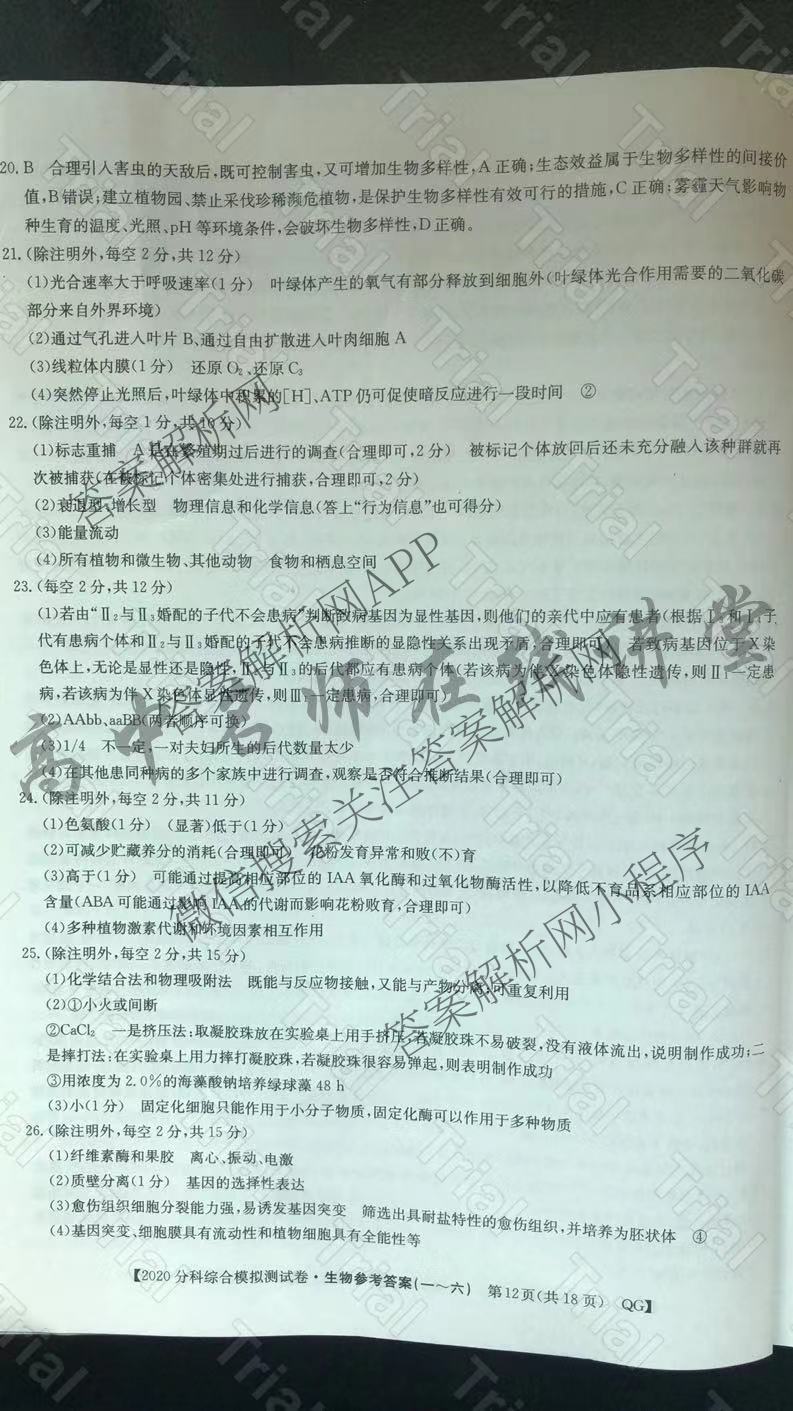 20. B 合理引入害虫的天敌后,既可控制害虫,又可增加生物多样性,A正确;生态效益属于生物多样性的间接价
值,B错误;建立植物园、禁止采伐珍稀濒危植物,是保护生物多样性有效可行的措施,C正确;雾霾天气影响物
种生育的温度、光照、pH等环境条件,会破坏生物多样性,D正确。
21.(除注明外,每空2分,共12分)
(1)光合速率大于呼吸速率(1分) 叶绿体产生的氧气有部分释放到细胞外(叶绿体光合作用需要的二氧化碳
部分来自外界环境)
(2)通过气孔进入叶片B、通过自由扩散进入叶肉细胞A
(3)线粒体内膜(1分) 还原O₂、还原C₃
(4)突然停止光照后,叶绿体中积累的[H]、ATP仍可促使暗反应进行一段时间 ②
22.(除注明外,每空1分,共10分)
(1)标志重捕 A是在繁殖期过后进行的调查(合理即可,2分) 被标记个体放回后还未充分融入该种群就再
次被捕获(在被标记个体密集处进行捕获,合理即可,2分)
(2)衰退型、增长型 物理信息和化学信息(答上“行为信息”也可得分)
(3)能量流动
(4)所有植物和微生物、其他动物 食物和栖息空间
23.(每空2分,共12分)
(1)若由“Ⅱ₂与Ⅱ₃婚配的子代不会患病”判断致病基因为显性基因,则他们的亲代中应有患者(根据Ⅰ 和Ⅰ 子
代有患病个体和Ⅱ₂与Ⅱ₃婚配的子代不会患病推断的显隐性关系出现矛盾,合理即可) 若致病基因位于X染
色体上,无论是显性还是隐性,Ⅱ₂与Ⅱ₃的后代都应有患病个体(若该病为伴X染色体隐性遗传,则Ⅱ₁一定患
病,若该病为伴X染色体显性遗传,则Ⅲ 一定患病,合理即可)
(2)AAbb、aaBB(两者顺序可换)
(3)1/4 不一定,一对夫妇所生的后代数量太少
(4)在其他患同种病的多个家族中进行调查,观察是否符合推断结果(合理即可)
24.(除注明外,每空2分,共11分)
(1)色氨酸(1分) (显著)低于(1分)
(2)可减少贮藏养分的消耗(合理即可) 花粉发育异常和败(不)育
(3)高于(1分) 可能通过提高相应部位的IAA氧化酶和过氧化物酶活性,以降低不育品系相应部位的IAA
含量(ABA可能通过影响IAA的代谢而影响花粉败育,合理即可)
(4)多种植物激素代谢和环境因素相互作用
25.(除注明外,每空2分,共15分)
(1)化学结合法和物理吸附法 既能与反应物接触,又能与产物分离,可重复利用
(2)①小火或间断
②CaCl₂ 一是挤压法:取凝胶珠放在实验桌上用手挤压,若凝胶珠不易破裂,没有液体流出,说明制作成功;二
是摔打法:在实验桌上用力摔打凝胶珠,若凝胶珠很容易弹起,则表明制作成功
③用浓度为2.0%的海藻酸钠培养绿球藻48 h
(3)小(1分) 固定化细胞只能作用于小分子物质,固定化酶可以作用于多种物质
26.(除注明外,每空2分,共15分)
(1)纤维素酶和果胶 离心、振动、电激
(2)质壁分离(1分) 基因的选择性表达
(3)愈伤组织细胞分裂能力强,易诱发基因突变 筛选出具耐盐特性的愈伤组织,并培养为胚状体 ④
(4)基因突变、细胞膜具有流动性和植物细胞具有全能性等
【2020分科综合模拟测试卷·生物参考答案(一~六) 第12页(共18页) QG】
答案解析网
答案解析网APP
高中名师在线讲堂
微信搜索关注答案解析网
答案解析网小程序
Trial